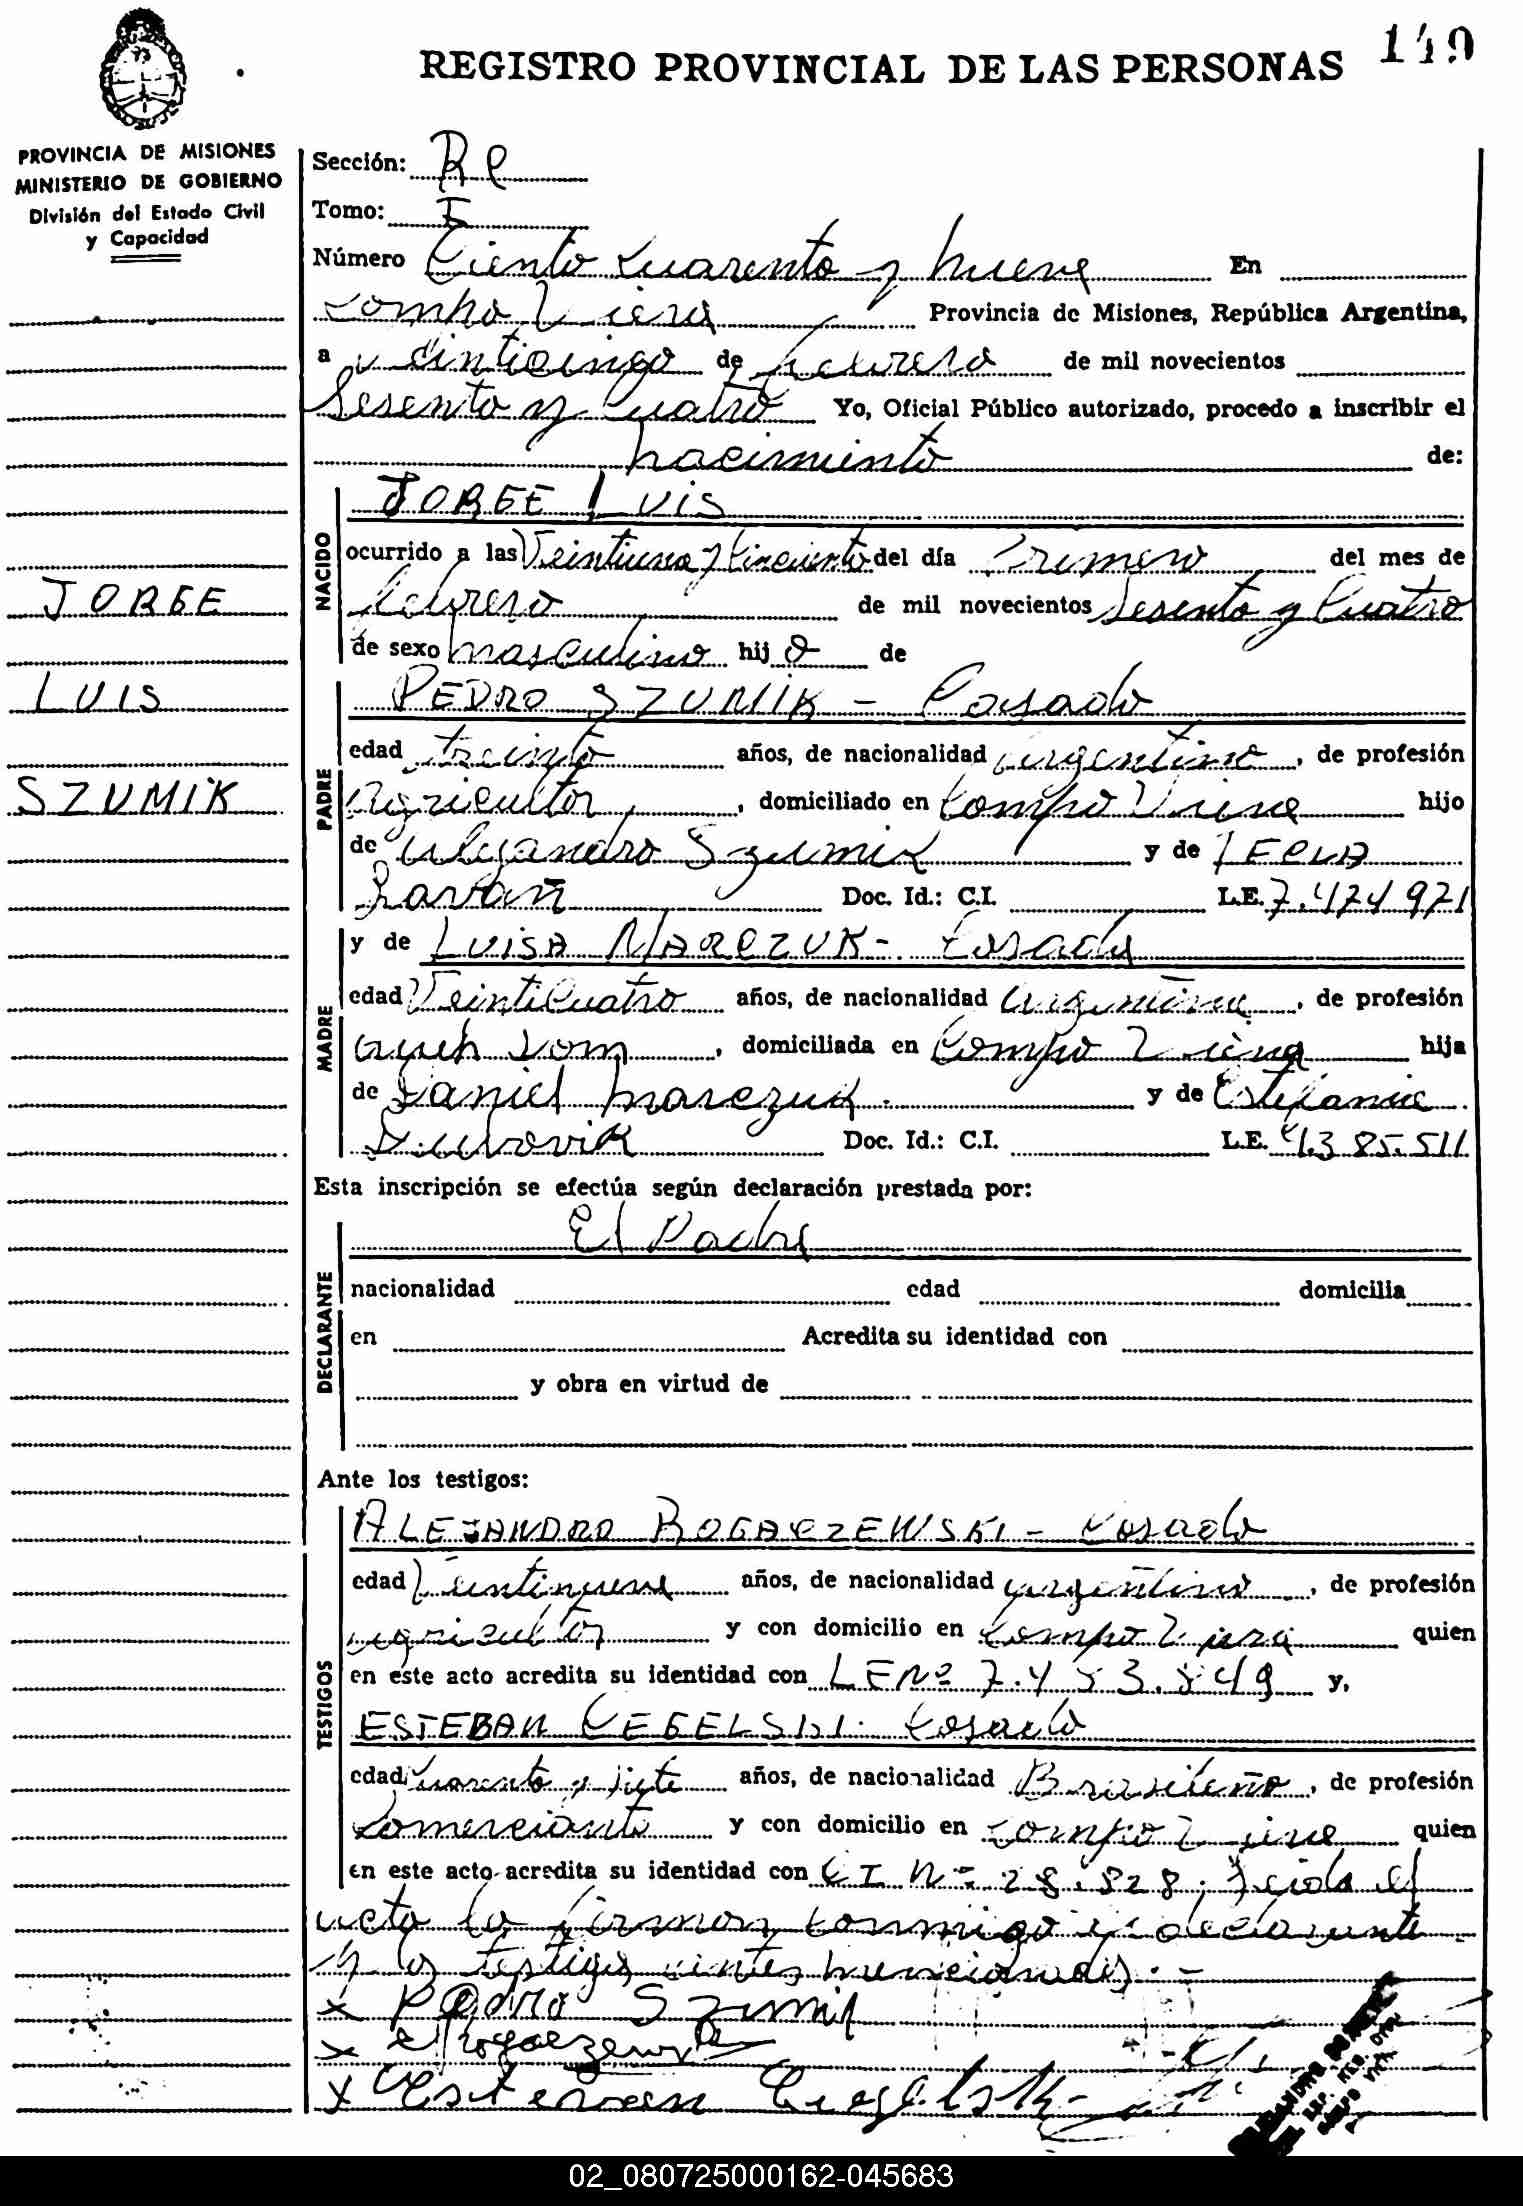 149
REGISTRO PROVINCIAL DE LAS PERSONAS
PROVINCIA DE MISIONES
MINISTERIO DE GOBIERNO
División del Estado Civil
y Capacidad
JORGE
LUIS
SZUMIK
Sección:
Tomo: I
Número Ciento cuarenta y nueve En
Campo Viera Provincia de Misiones, República Argentina,
a veinticinco de febrero de mil novecientos
Sesenta y Cuatro Yo, Oficial Público autorizado, procedo a inscribir el
nacimiento de:
NACIDO
JORGE LUIS
ocurrido a las Veintiuna y Cincuenta del día Primero del mes de
febrero de mil novecientos Sesenta y Cuatro
de sexo masculino hijo de
PADRE
PEDRO SZUMIK - Casado
edad treinta años, de nacionalidad argentino, de profesión
agricultor, domiciliado en Campo Viera hijo
de Alejandro Szumik y de TECLA
Doc. Id.: C.I. L.E. 7.474.971
MADRE
y de LUISA MARCZUK - Casada
edad Veinticuatro años, de nacionalidad argentina, de profesión
domiciliada en Campo Viera hija
de Daniel Marczuk. y de Estefania
Doc. Id.: C.I. L.E. 4.385.511
Esta inscripción se efectúa según declaración prestada por:
DECLARANTE
El Padre
nacionalidad edad domicilia
en Acredita su identidad con
y obra en virtud de
Ante los testigos:
TESTIGOS
ALEJANDRO ROGACZEWSKI - Casado
edad Veintinueve años, de nacionalidad argentino, de profesión
agricultor y con domicilio en Campo Viera quien
en este acto acredita su identidad con LE Nº y,
ESTEBAN CEGELSKI. Casado
edad Cuarenta y siete años, de nacionalidad Brasileño, de profesión
Comerciante y con domicilio en Campo Viera quien
en este acto acredita su identidad con CI Nº 28.828. Leida el
acta la firman conmigo el declarante
y los testigos antes mencionados. -
x Pedro Szumik
x
x Estevan
02_080725000162-045683